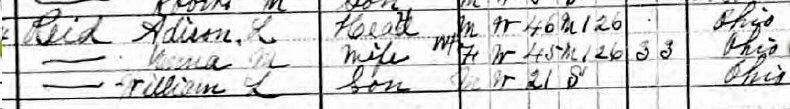 M Son
Reid Adison L Head M W 46 M1 26 Ohio
— M Wife F W 45 M1 26 3 3 Ohio
— William L Son M W 21 S Ohio